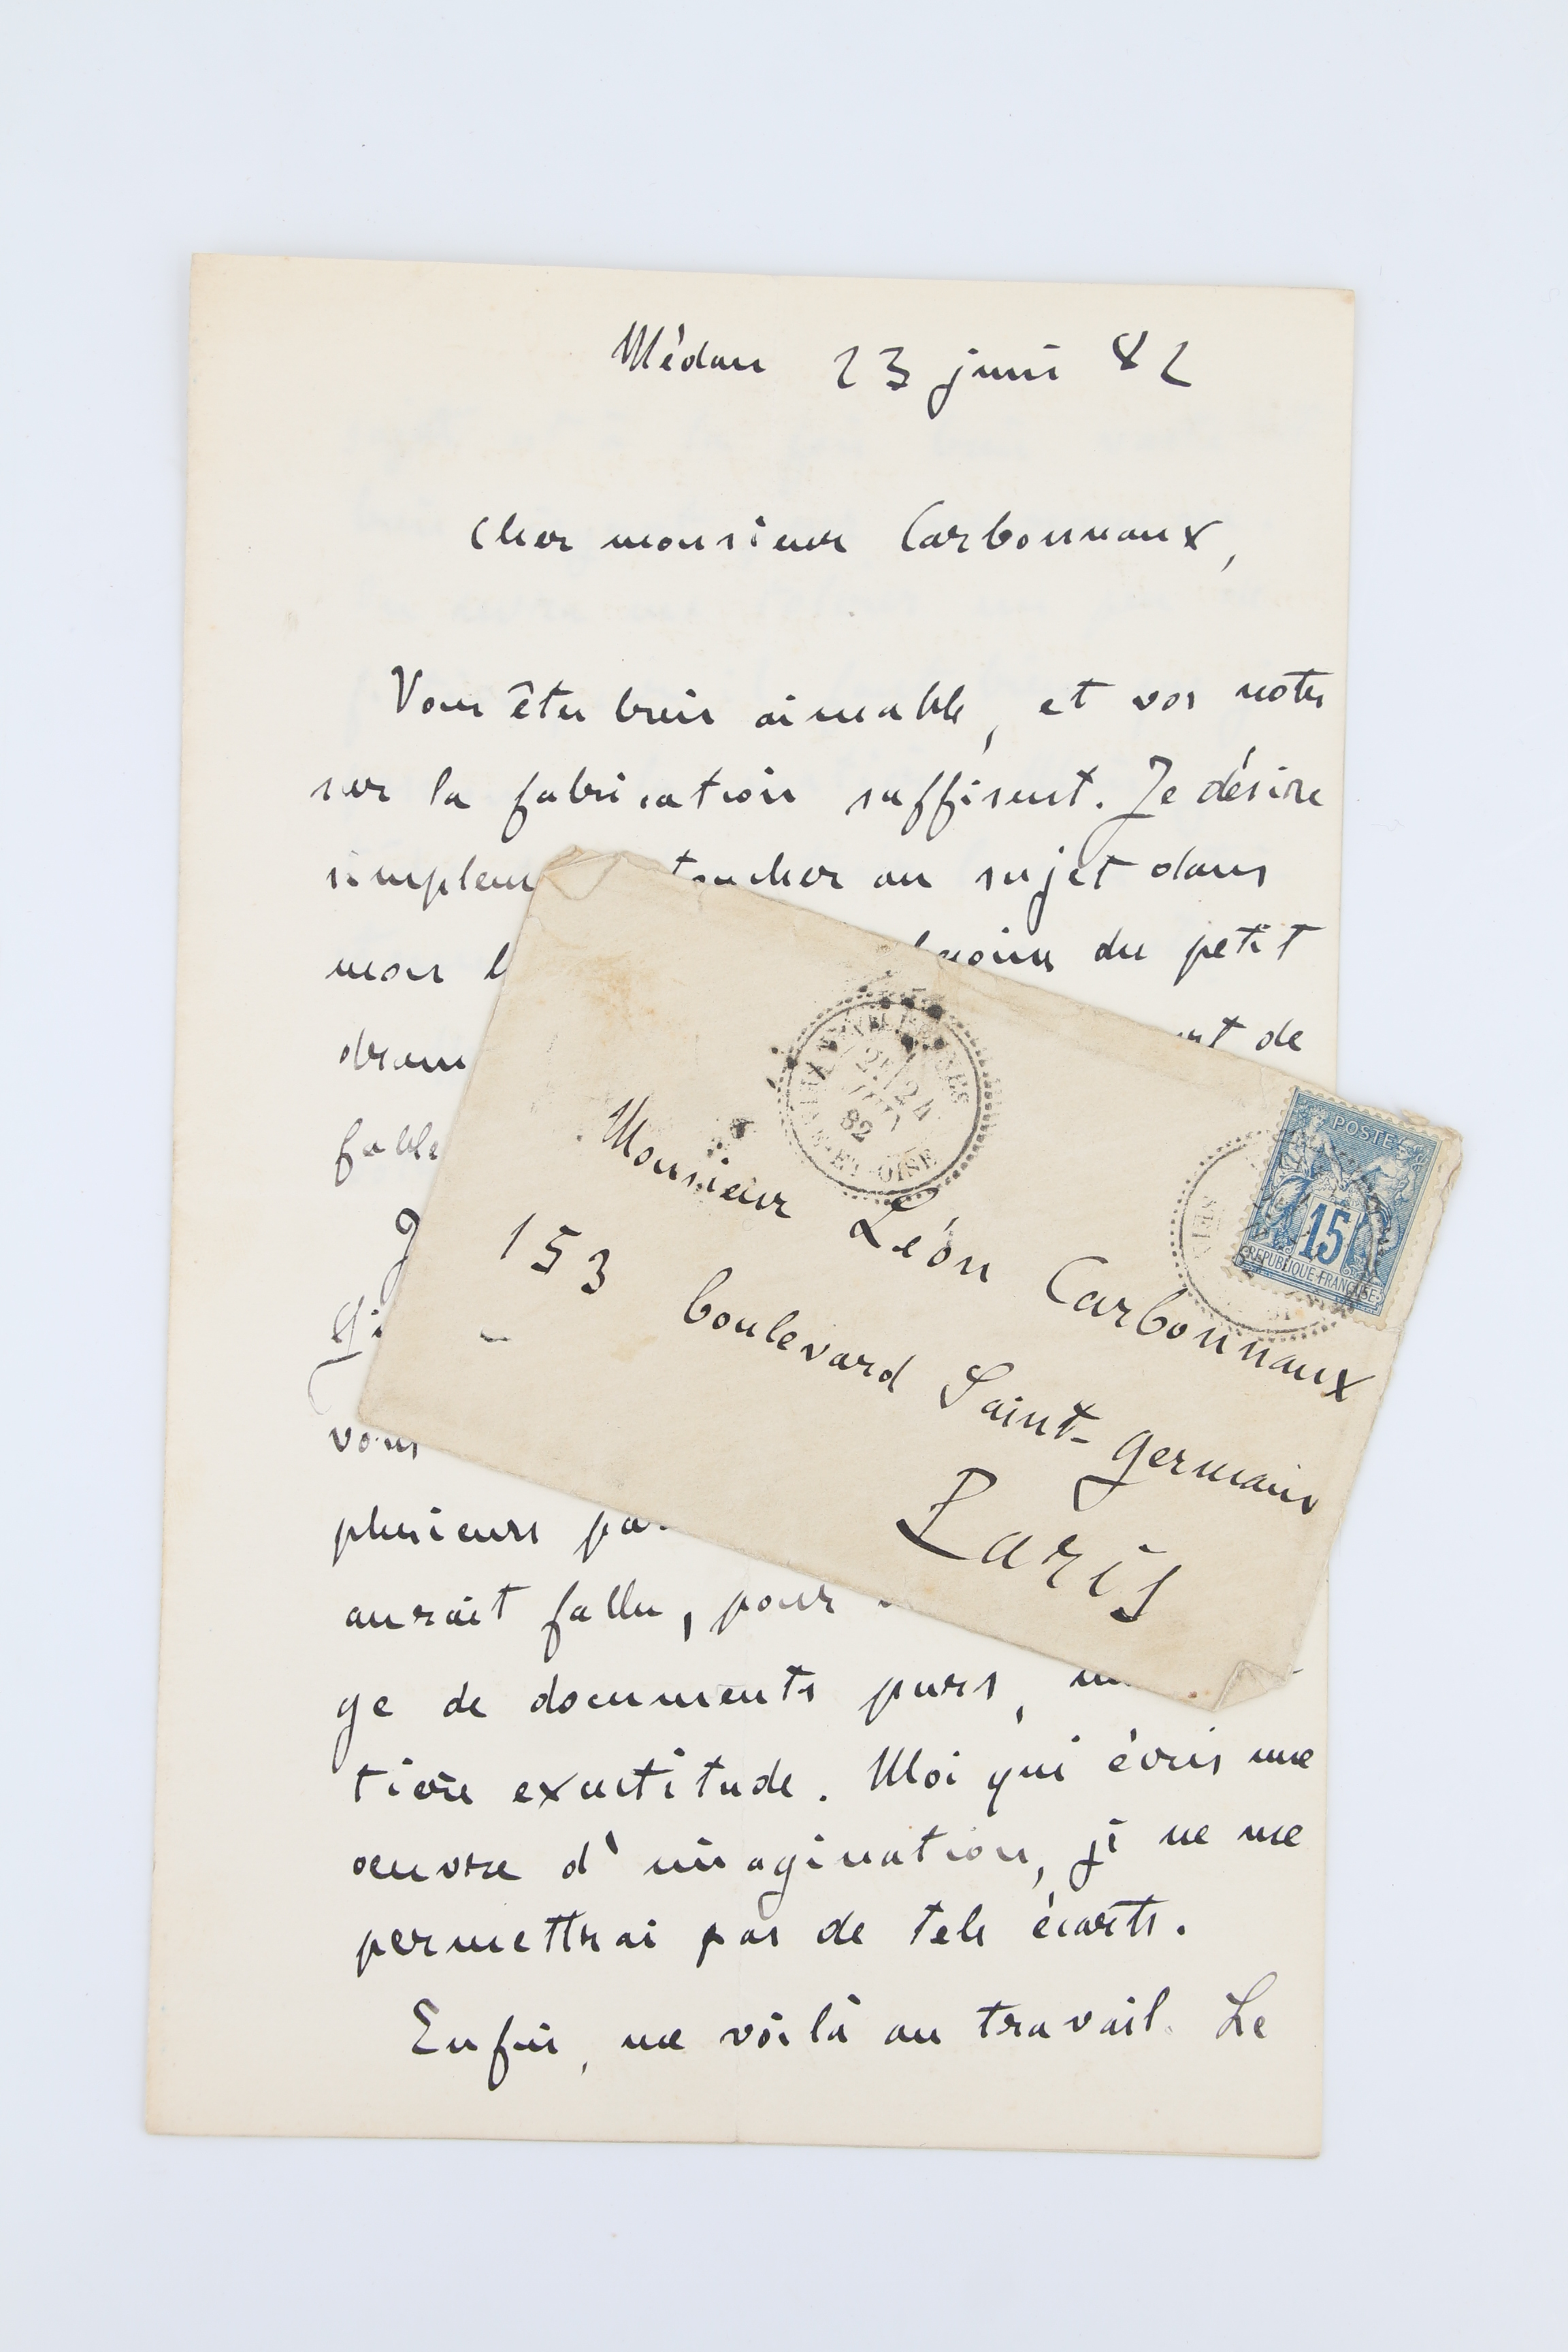 Médan 23 juin 82
Cher monsieur Carbonnaux,
Vous êtes bien aimable, et vos notes
sur la fabrication suffisent. Je désire
simplem toucher au sujet dans
mon besoins du petit
dram de
fable
vous
plusieurs pa
aurait fallu, pour
ge de documents purs,
tière exactitude. Moi qui écris une
oeuvre d'imagination, je ne me
permettrai pas de tels écarts.
Enfin, me voilà au travail. Le
24
82
ET-OISE
POSTES
15
REPUBLIQUE FRANÇAISE
Monsieur Léon Carbonnaux
153 boulevard Saint-Germain
Paris